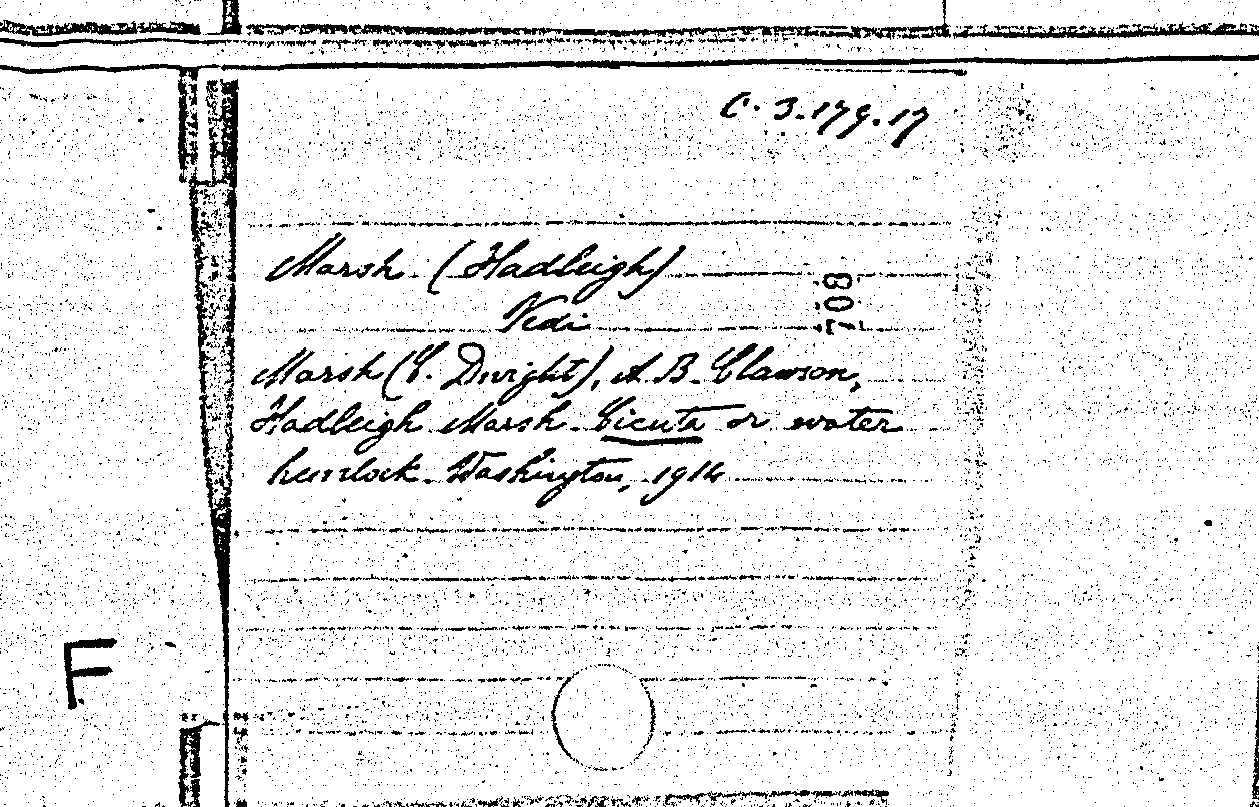 C. 3.179.17
Marsh (Hadleigh)
708
Vedi
Marsh (C. Dwight), A. B. Clawson,
Hadleigh Marsh. Cicuta or water
hemlock. Washington, 1914
F